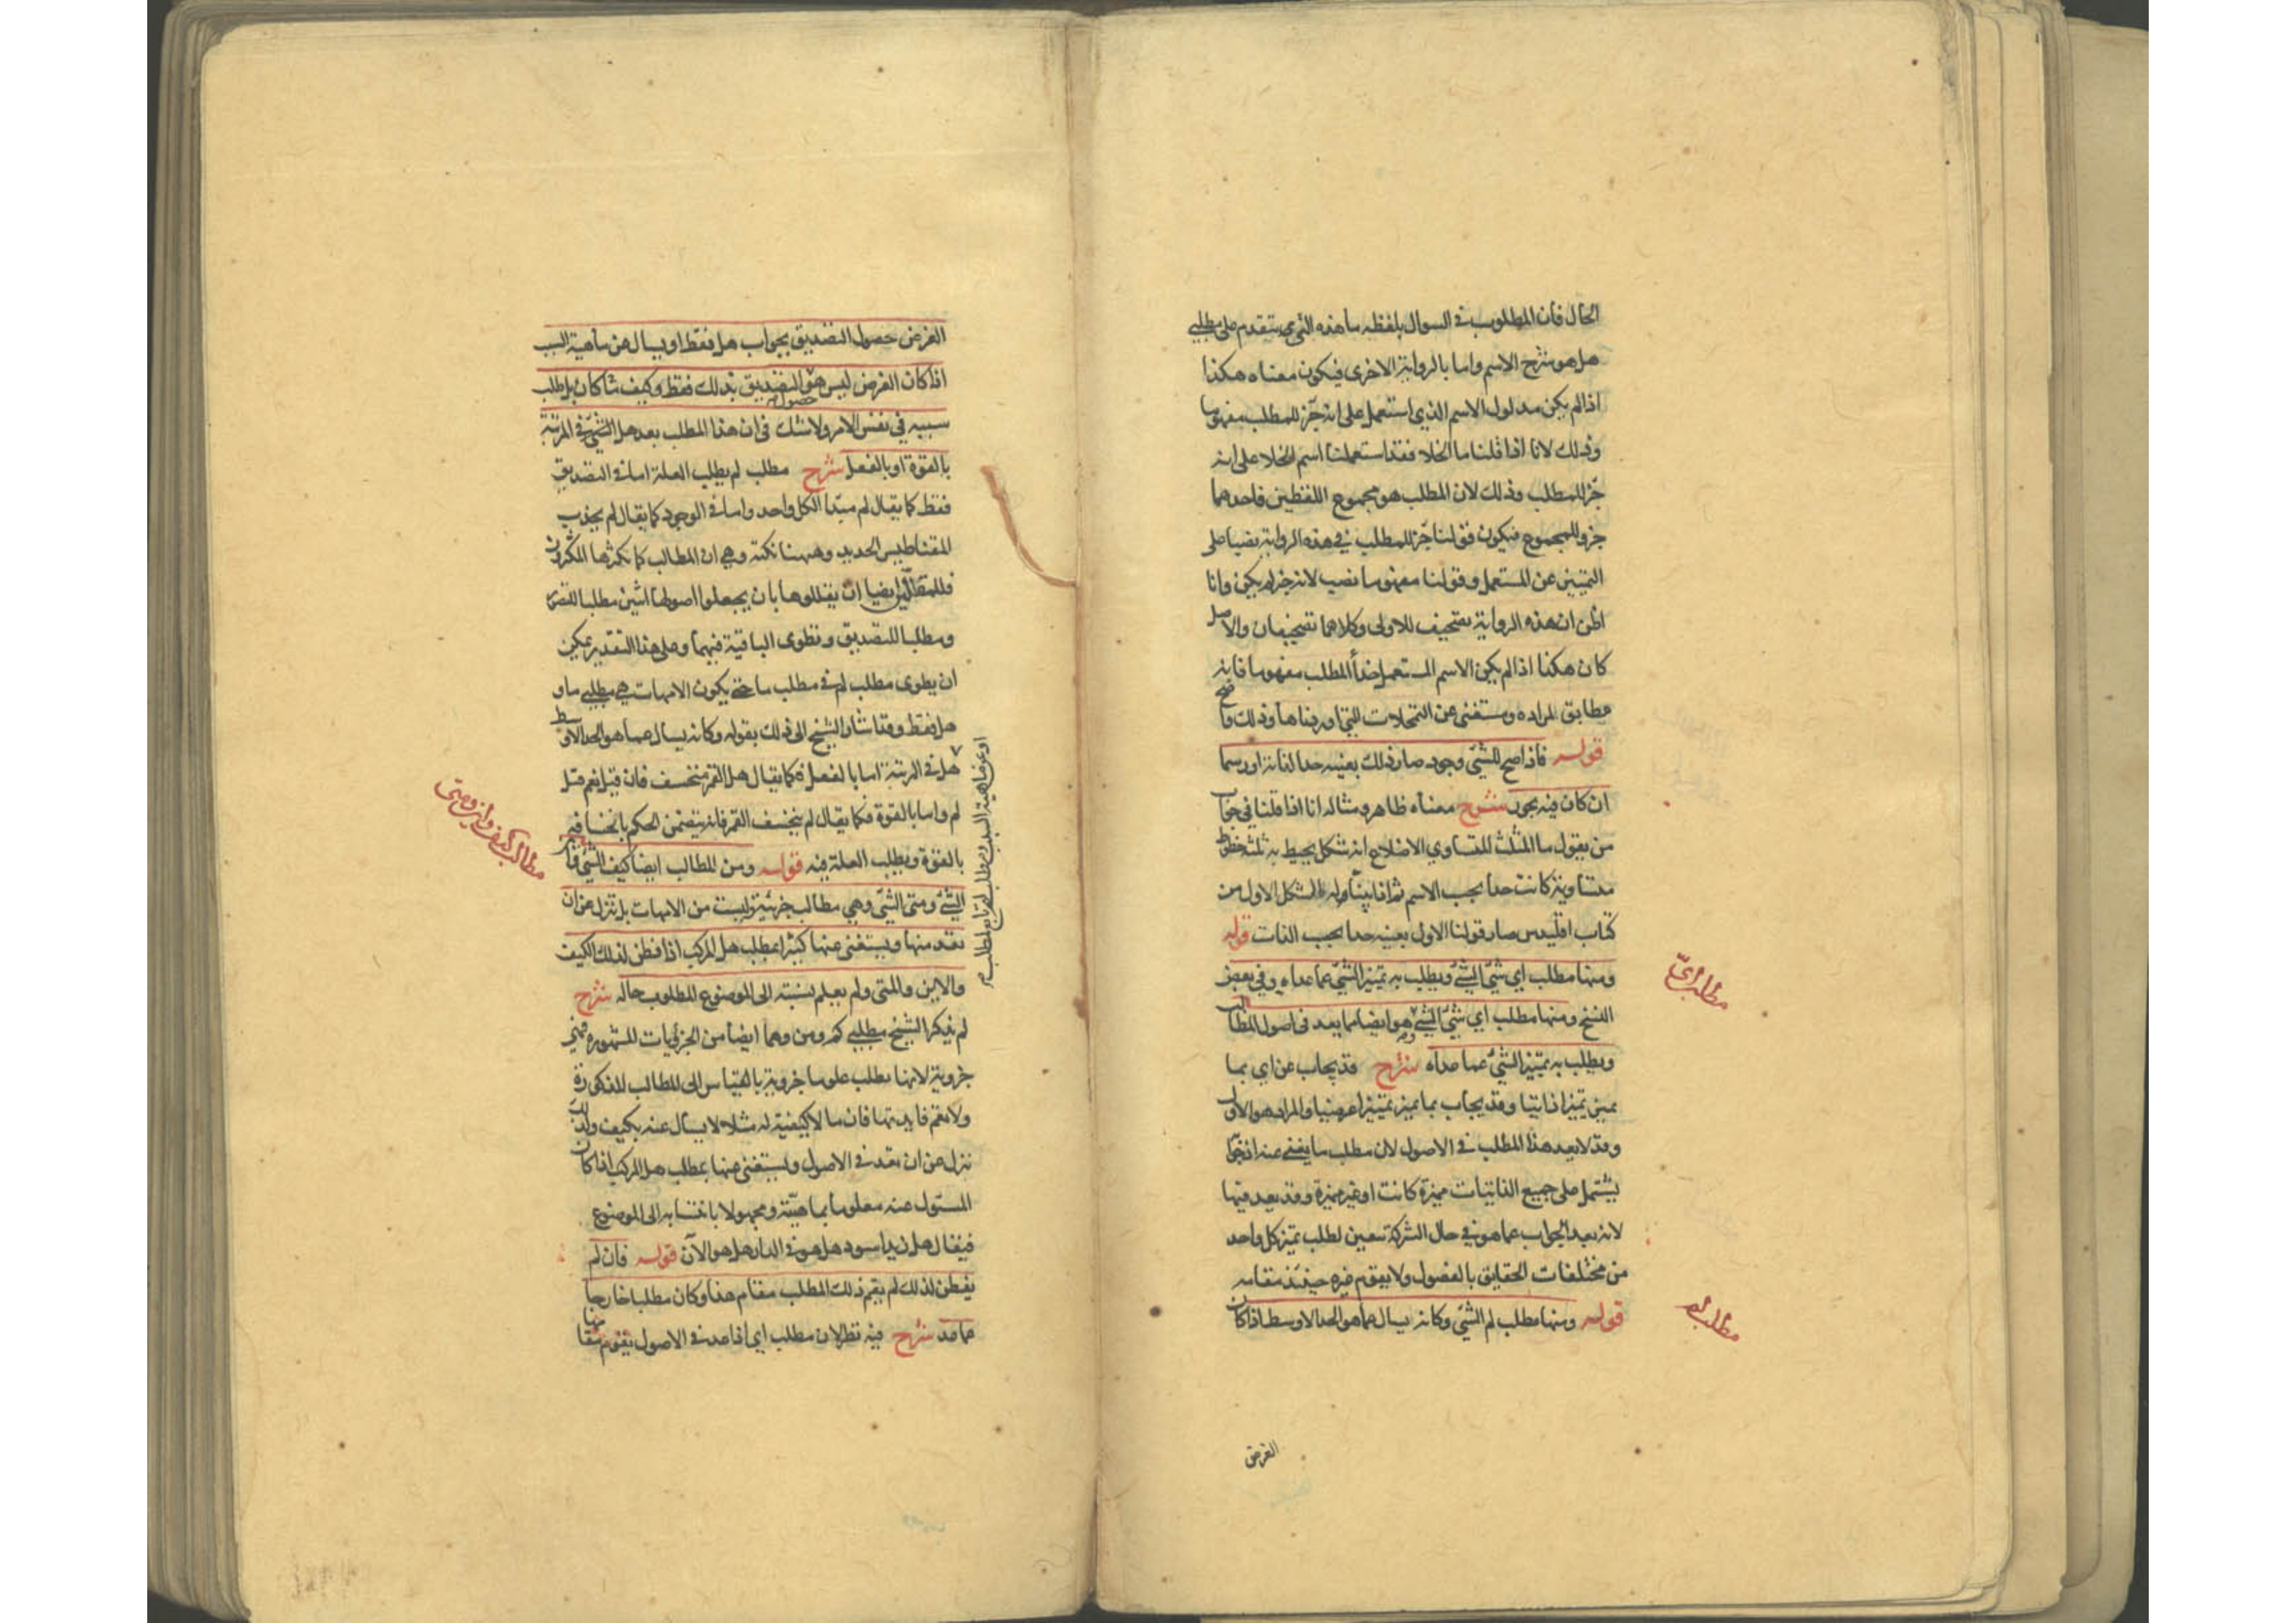 الحال فان المطلوب في السوال بلفظه ما هذه التي يتقدم على مطلبي
هل هو شرح الاسم واما بالرواية الاخرى فيكون معناه هكذا
اذا لم يكن مدلول الاسم الذي استعمل على انه جزء للمطلب مفهوما
وذلك لانا اذا قلنا ما الخلا فقد استعملنا اسم الخلا على انه
جزء للمطلب وذلك لان المطلب هو مجموع اللفظين فاحدهما
جزو للمجموع فيكون قولنا جزء للمطلب في هذه الرواية نصبا على
التميز عن المستعمل وقولنا مفهوما نصب لانه خبر لم يكن وانا
اظن ان هذه الرواية تصحيف للاولى وكلاهما تصحيفان والاصل
كان هكذا اذا لم يكن الاسم المستعمل جزأ للمطلب مفهوما فانه
مطابق لمراده ومستغنى عن التمحلات التي اوردناها وذلك واضح
قوله فاذا صح للشئ وجود صار ذلك بعينه حدا لذاته او رسما
ان كان فيه تجوز شرح معناه ظاهر ومثاله انا اذا قلنا في جواب
من يقول ما المثلث المتساوي الاضلاع انه شكل يحيط به ثلثة خطوط
متساوية كانت حدا بحسب الاسم ثم اذا بينا انه الشكل الاول من
كتاب اقليدس صار قولنا الاول بعينه حدا بحسب الذات قوله
ومنها مطلب اي شئ الشئ ويطلب به تميز الشئ عما عداه وفي بعض
النسخ ومنها مطلب اي شئ الشئ وهو ايضا مما يعد في اصول المطالب
ويطلب به تميز الشئ عما عداه شرح قد يجاب عن اي بما
يميز تميزا ذاتيا وقد يجاب بما يميز تميزا عرضيا والمراد هو الاول
وقد لا يعد هذا المطلب في الاصول لان مطلب ما يغني عنه اذ جوابه
يشتمل على جميع الذاتيات مميزة كانت او غير مميزة وقد يعد فيها
لانه بعد الجواب عما هو في حال الشركة تتعين لطلب تميز كل واحد
من مختلفات الحقايق بالفصول ولا يقوم غيره حينئذ مقامه
قوله ومنها مطلب لم الشئ وكانه يسال عما هو الحد الاوسط اذا كان
الغرض
مطلب اي
مطلب لم
الغرض حصول التصديق بجواب هل فقط او يسال عن ماهية السبب
اذا كان الغرض ليس هو التصديق بذلك فقط وكيف ما كان بل طلب
حصوله
سببه في نفس الامر ولا شك في ان هذا المطلب بعد هل الشئ في المرتبة
بالقوة او بالفعل شرح مطلب لم يطلب العلة اما في التصديق
فقط كما يقال لم مبدا الكل واحد واما في الوجود كما يقال لم يجذب
المقناطيس الحديد وههنا نكتة وهي ان المطالب كما تكثرها المكثرون
فللمقللين ايضا ان يقللوها بان يجعلوا اصولها اثنين مطلبا للتصور
ومطلبا للتصديق وتطوى الباقية فيهما وعلى هذا التقدير يمكن
ان يطوى مطلب لم في مطلب ما حتى يكون الامهات هي مطلبي ما و
هل فقط وقد اشار الشيخ الى ذلك بقوله وكانه يسال عما هو الحد الاوسط
هل في المرتبة اما بالفعل فكما يقال هل القمر منخسف فان قيل نعم قيل
لم واما بالقوة فكما يقال لم ينخسف القمر فانه يتضمن الحكم بانخسافه
بالقوة ويطلب العلة فيه قوله ومن المطالب ايضا كيف الشئ واين
الشئ ومتى الشئ وهي مطالب جزئية ليست من الامهات بل تنزل عن ان
تعد منها ويستغنى عنها كثيرا بمطلب هل المركب اذا فطن لذلك الكيف
والاين والمتى ولم يعلم نسبته الى الموضوع المطلوب حاله شرح
لم يذكر الشيخ مطلبي كم ومن وهما ايضا من الجزئيات المشهورة فهي
جزوية لانها تطلب علوما جزوية بالقياس الى المطالب المذكورة
ولا تعم فايدتها فان ما لا كيفية له مثلا لا يسال عنه بكيف ولذلك
تنزل عن ان تعد في الاصول ويستغنى عنها بمطلب هل المركب اذا كان
المسئول عنه معلوما بماهيته ومجهولا بانتسابه الى الموضوع
فيقال هل زيد اسود هل هو في الدار هل هو الآن قوله فان لم
يفطن لذلك لم يقم ذلك المطلب مقام هذا وكان مطلبا خارجا
عما عد شرح فيه نظر لان مطلب اي اذا عد في الاصول يقوم مقامها
او عن ماهية السبب ومطلب لم تابع لمطلب
مطالب كيف واين ومتى